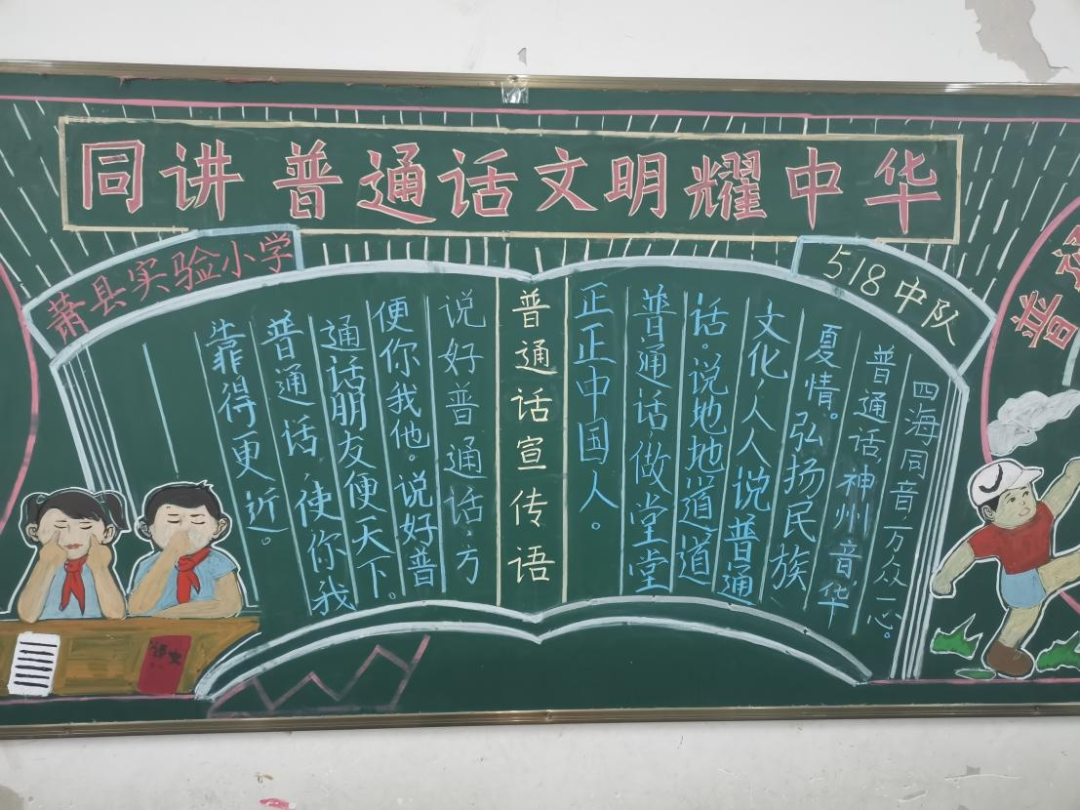 同讲普通话文明耀中华
萧县实验小学
518中队
四海同音,万众一心。
普通话,神州音,华
夏情。弘扬民族
文化,人人说普通
话。说地地道道
普通话,做堂堂
正正中国人。
普通话宣传语
说好普通话,方
便你我他。说好普
通话朋友便天下。
普通话,使你我
靠得更近。
语文
普